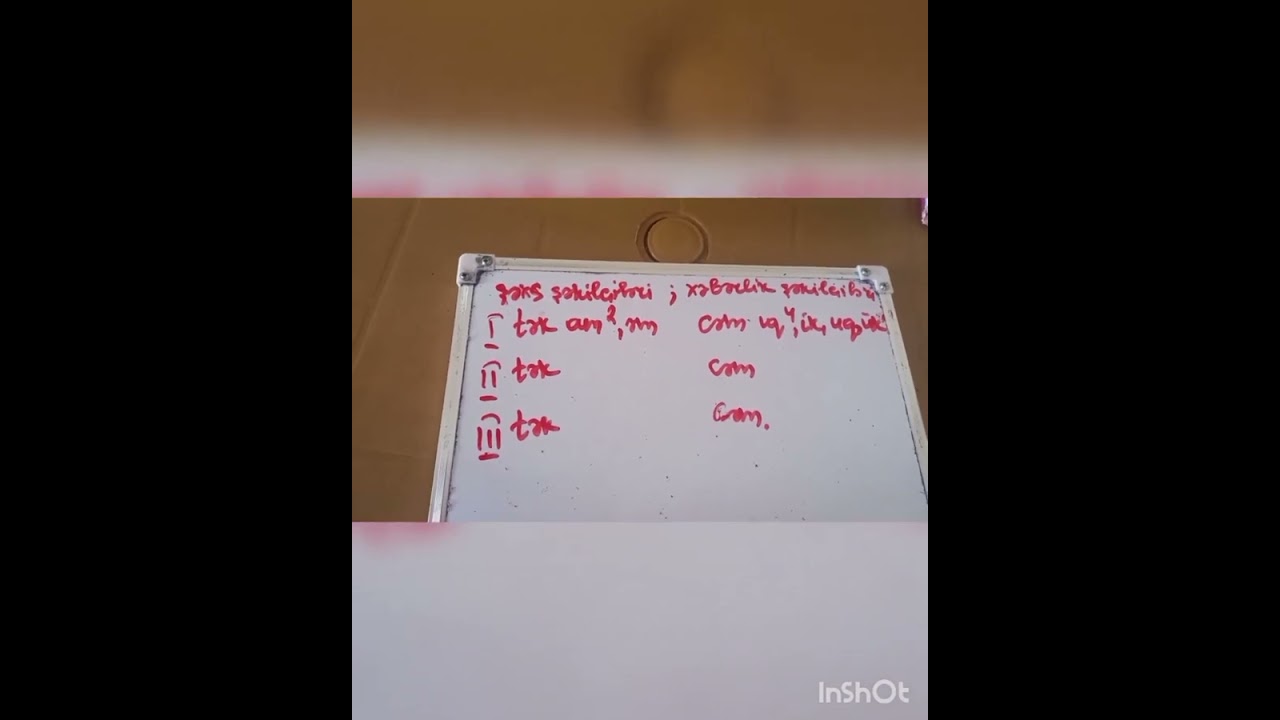 şəxs şəkilçiləri ; xəbərlik şəkilçiləri
I tək am², əm cəm ıq⁴, ik, uq, ük
II tək cəm
III tək Cəm.
InShOt